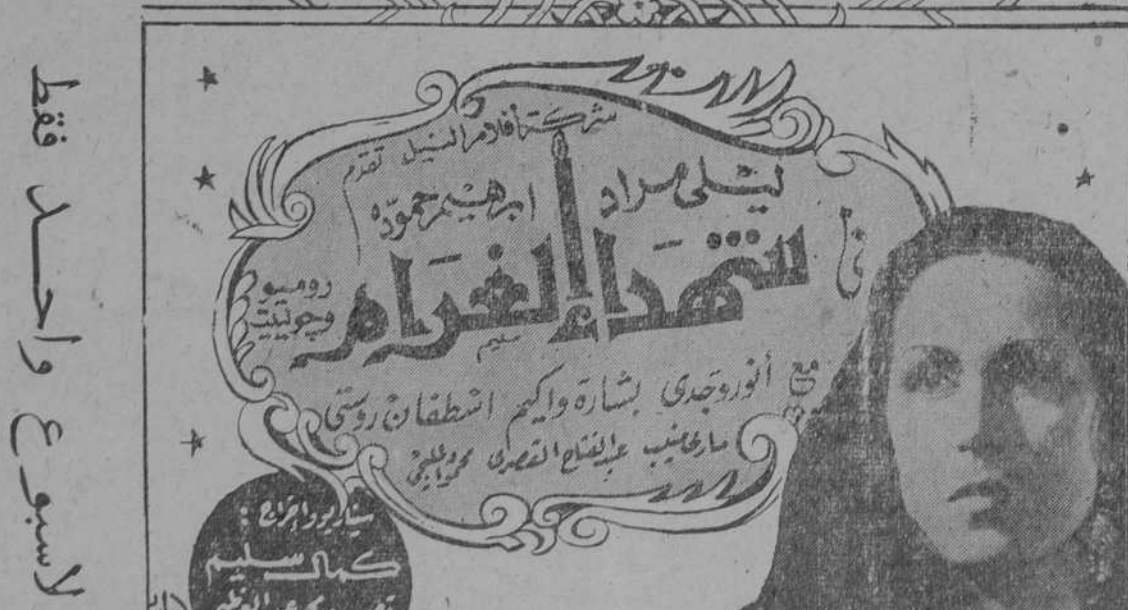 لاسبوع واحد فقط
شركة أفلام النيل تقدم
ليلى مراد ابرهيم حموده
في
شهداء الغرام
روميو
وجولييت
سليم
مع أنور وجدى بشارة واكيم اسطفان روستى
مارى منيب عبد الفتاح القصرى محمود المليجى
سيناريو واخراج :
كمال سليم